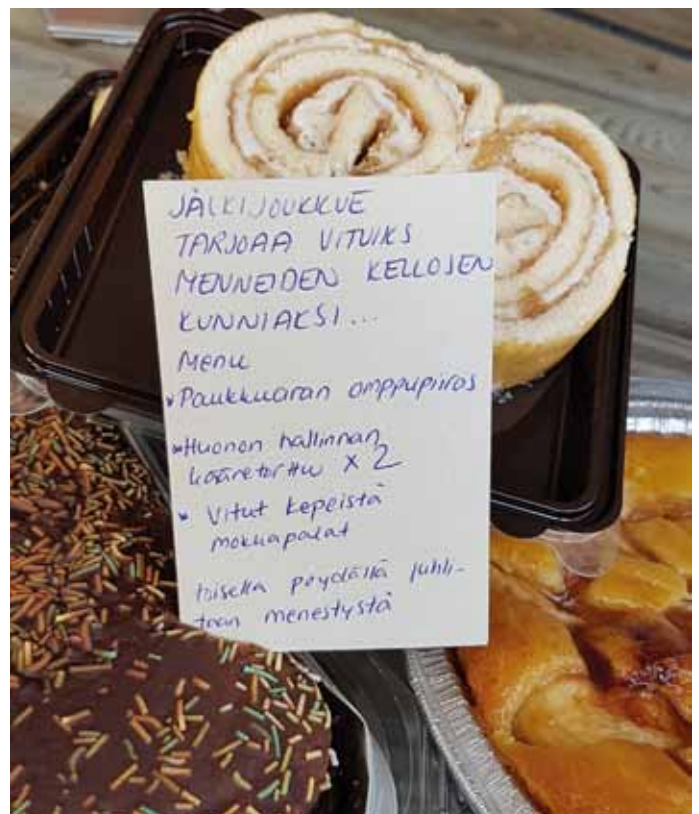 JÄLKIJOUKKUE
TARJOAA VITUIKS
MENNEIDEN KELLOJEN
KUNNIAKSI...
Menu
* Paukkuaran omppupiiras
* Huonon hallinnan
kääretorttu x 2
* Vitut kepeistä
mokkapalat
toisella pöydällä juhli-
taan menestystä